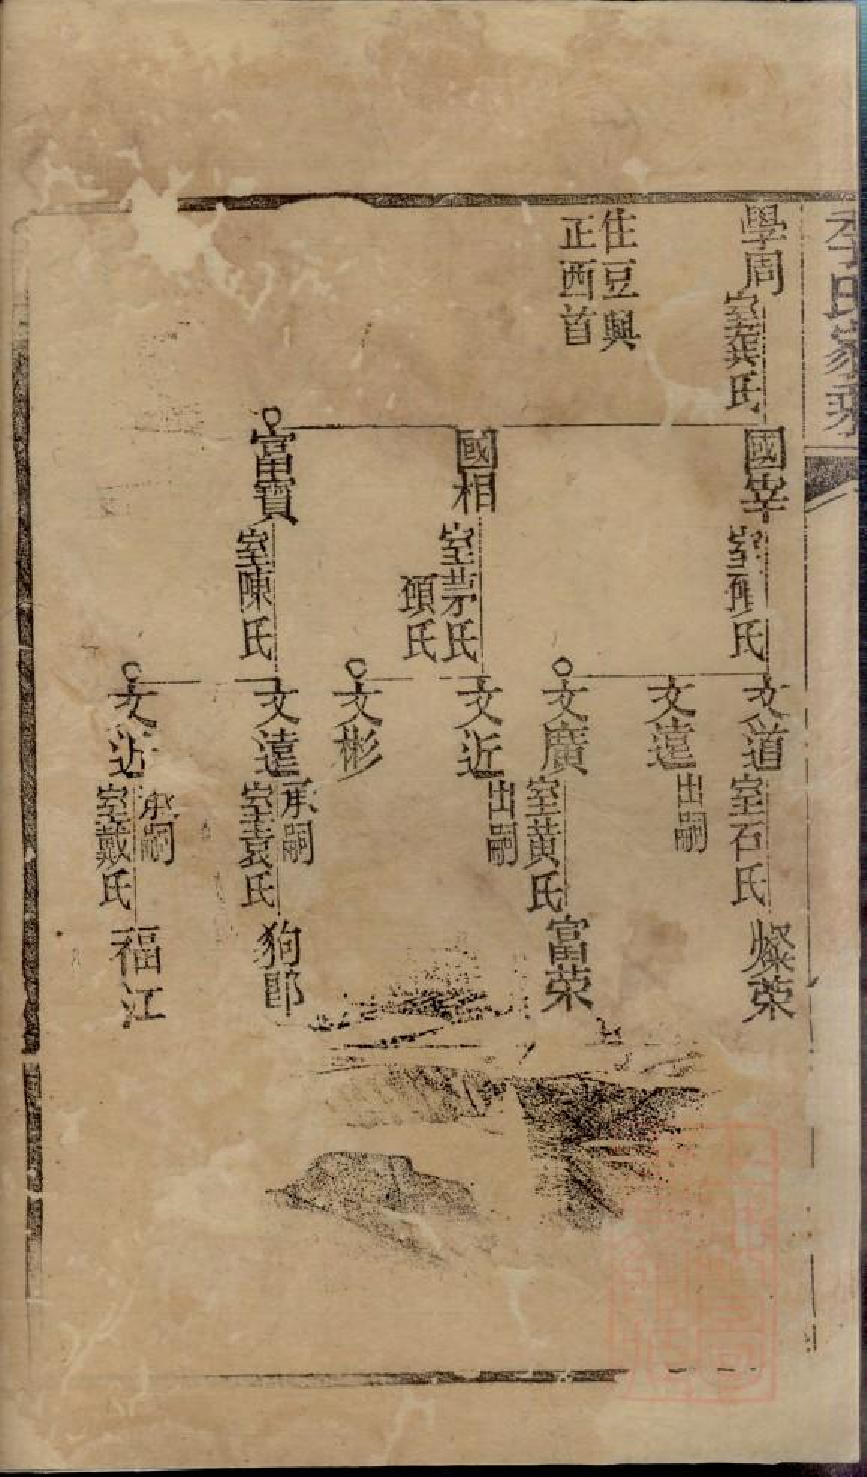 李氏家乘
學周
室龔氏
住豆興
正西首
國宰
室顧氏
國相
室茅氏
頊氏
富寶
室陳氏
文道
室石氏
文遠
出嗣
文廣
室黃氏
文近
出嗣
文彬
文遠
承嗣
室袁氏
文近
承嗣
室戴氏
燦荣
富荣
狗郎
福江